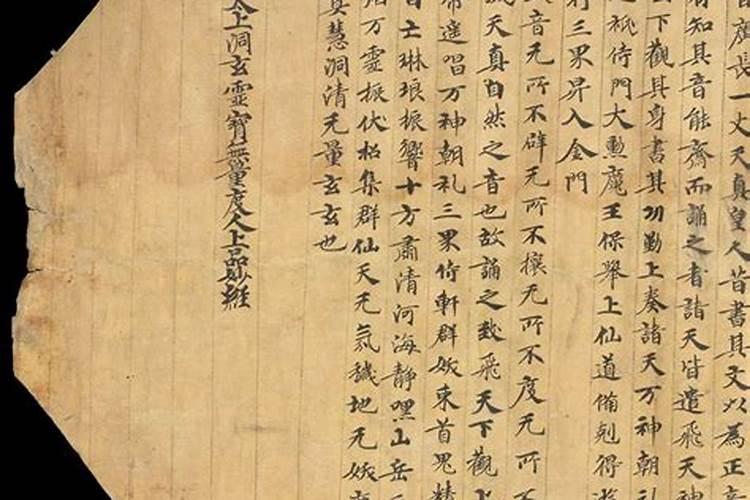 廣長一丈天真皇人昔書其文以為正音
有知其音能齋而誦之者諸天皆遣飛天神
下觀其身書其功勤上奏諸天万神朝礼
祇侍門大勳魔王保舉上仙道備剋得遊
行三界昇入金門
音无所不辟无所不禳无所不度无所不
成天真自然之音也故誦之致飛天下觀上
帝遥唱万神朝礼三界侍軒群妖束首鬼精
自亡琳琅振響十方肅清河海静嘿山岳
万靈振伏招集群仙天无氛穢地无妖
真慧洞清无量玄玄也
太上洞玄靈寶無量度人上品妙經